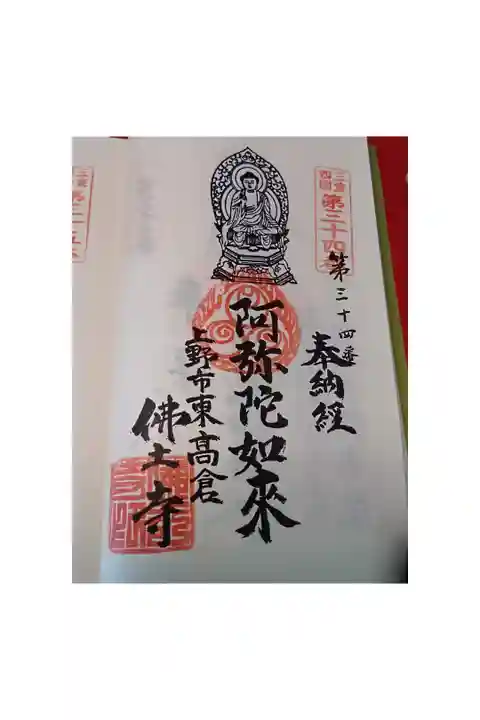 三重
四国
第三十四番
第三十四番
奉納経
阿弥陀如来
上野市東高倉
佛土寺